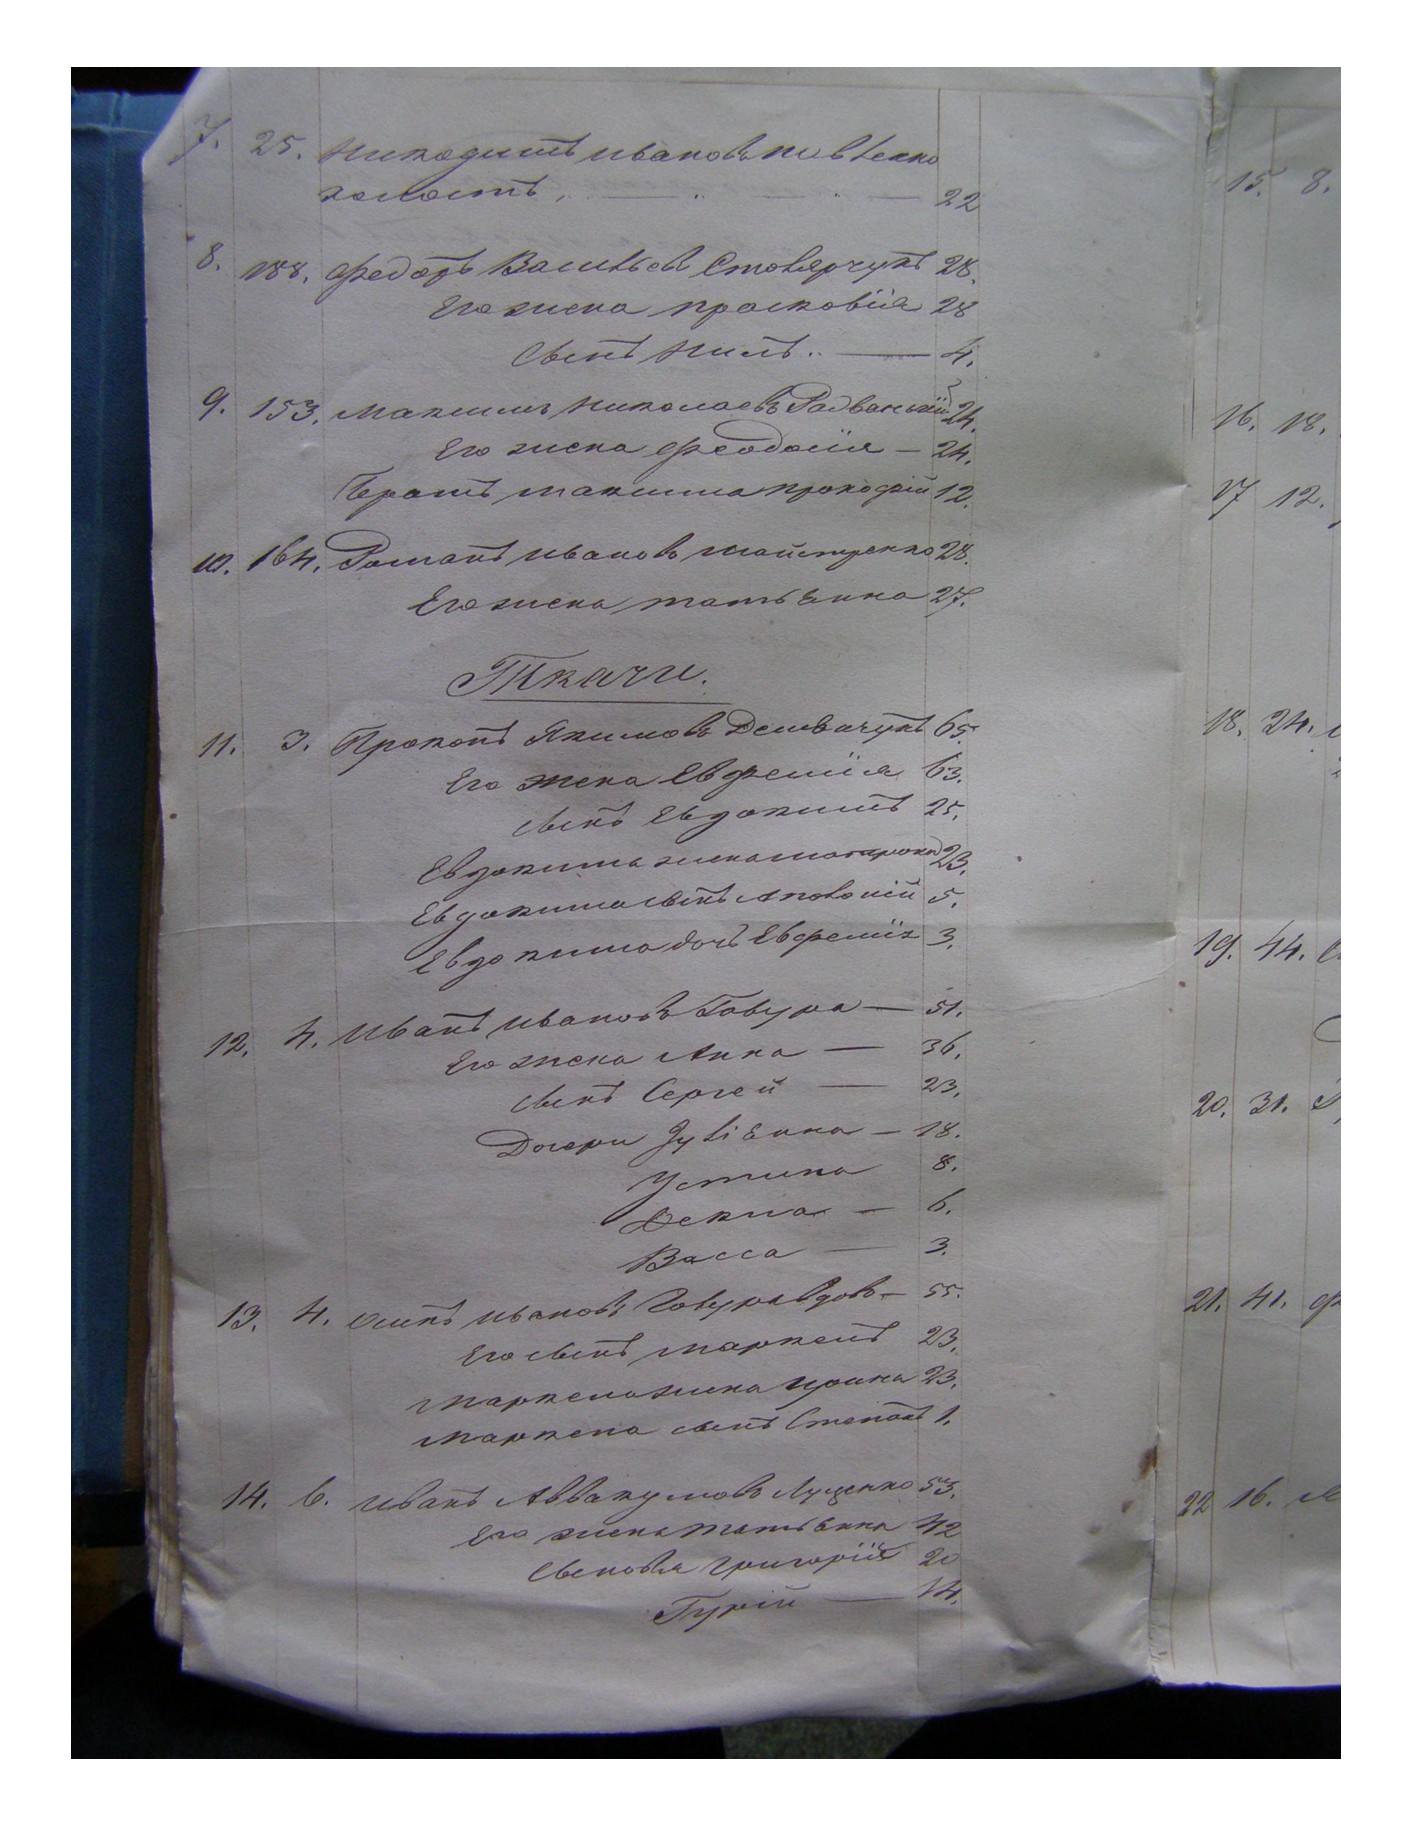 7. 25. Никодимъ Ивановъ
холостъ, — " — " — 22
8. 188. Федоръ Васильевъ Столярчукъ 28.
Его жена Прасковїя 28
Сынъ Нилъ .. — 4.
9. 153. Максимъ Николаевъ Радванскій 24.
Его жена Феодосїя — 24.
Братъ Максима Прокофій 12.
10. 164. Романъ Ивановъ Майстренко 28.
Его жена Татьянна 27.
Ткачи.
11. 3. Прокопъ Якимовъ 65.
Его жена Евфемїя 63.
Сынъ Евдокимъ 25.
Евдокима жена 23.
Евдокима сынъ 5.
Евдокима дочь Евфемїя 3.
12. 4. Иванъ Ивановъ Говура — 51.
Его жена Анна — 36.
Сынъ Сергей — 23.
Дочери Іуліянна — 18.
Устина 8.
Фекла — 6.
Васса — 3.
13. 4. Осипъ Ивановъ Говура вдовъ — 55.
Его сынъ Маркелъ 23.
Маркела жена Ирина 23.
Маркела сынъ Степанъ 1.
14. 6. Иванъ Аввакумовъ Луценко 53.
Его жена Татьянна 42
Сыновья Григорїй 20
Гурій — 14.
15. 8.
16. 18.
17 12.
18. 24.
19. 44.
20. 31.
21. 41.
22 16.